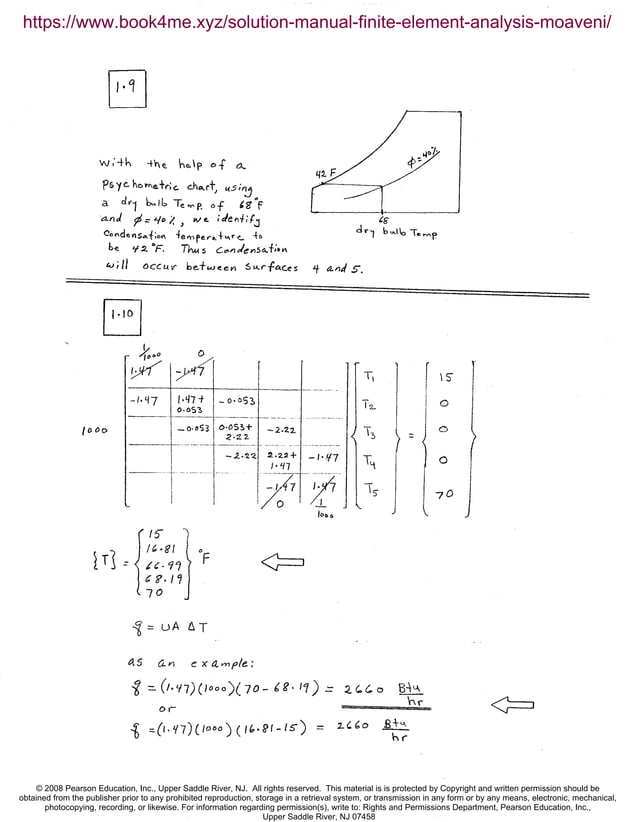 https://www.book4me.xyz/solution-manual-finite-element-analysis-moaveni/
1.9
With the help of a
Psychometric chart, using
a dry bulb Temp. of 68°F
and φ=40%, we identify
Condensation temperature to
be 42°F. Thus Condensation
will occur between surfaces 4 and 5.
42 F
φ=40%
68
dry bulb Temp
1.10
1/1000 0
1.47 -1.47
-1.47 1.47+0.053 -0.053
1000 -0.053 0.053+2.22 -2.22
-2.22 2.22+1.47 -1.47
-1.47 1.47
0 1/1000
T1
T2
T3
T4
T5
=
15
0
0
0
70
{T} = {15 16.81 66.99 68.19 70} °F
q = UA ΔT
as an example:
q = (1.47)(1000)(70-68.19) = 2660 Btu/hr
or
q =(1.47)(1000)(16.81-15) = 2660 Btu/hr
© 2008 Pearson Education, Inc., Upper Saddle River, NJ. All rights reserved. This material is is protected by Copyright and written permission should be
obtained from the publisher prior to any prohibited reproduction, storage in a retrieval system, or transmission in any form or by any means, electronic, mechanical,
photocopying, recording, or likewise. For information regarding permission(s), write to: Rights and Permissions Department, Pearson Education, Inc.,
Upper Saddle River, NJ 07458